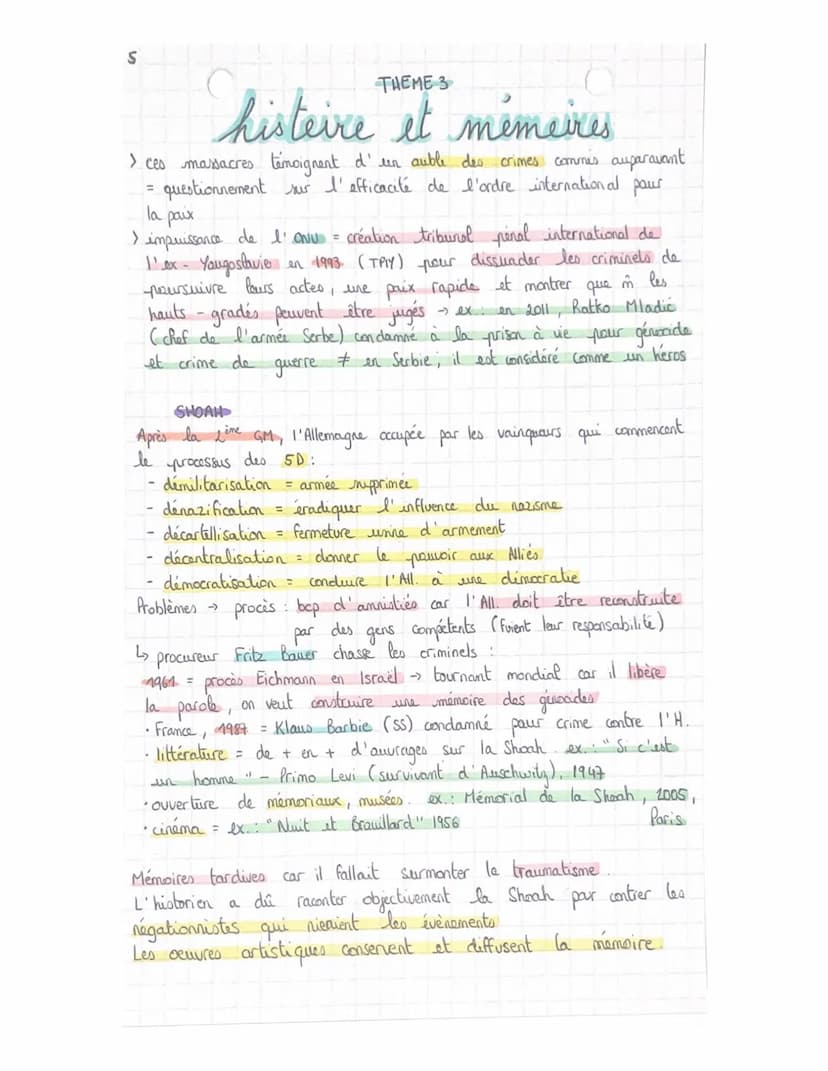 5
THEME 3
histoire et mémoires
> ces massacres témoignent d'un oubli des crimes commis auparavant
= questionnement sur l'efficacité de l'ordre international pour
la paix
> impuissance de l'ONU = création tribunal pénal international de
l'ex-Yougoslavie en 1993 (TPIY) pour dissuader les criminels de
poursuivre leurs actes, une paix rapide et montrer que m̂ les
hauts-gradés peuvent être jugés → ex : en 2011, Ratko Mladić
(chef de l'armée Serbe) condamné à la prison à vie pour génocide
et crime de guerre ≠ en Serbie, il est considéré comme un héros
SHOAH
Après la 2ème GM, l'Allemagne occupée par les vainqueurs qui commencent
le processus des 5D :
- démilitarisation = armée supprimée
- dénazification = éradiquer l'influence du nazisme
- décartellisation = fermeture usine d'armement
- décentralisation = donner le pouvoir aux Alliés
- démocratisation = conduire l'All. à une démocratie
Problèmes → procès : bcp d'amnistiés car l'All. doit être reconstruite
par des gens compétents (fuient leur responsabilité)
↳ procureur Fritz Bauer chasse les criminels :
1961 = procès Eichmann en Israël → tournant mondial car il libère
la parole, on veut construire une mémoire des génocides
· France, 1987 = Klaus Barbie (SS) condamné pour crime contre l'H.
· littérature = de + en + d'ouvrages sur la Shoah. ex. : "Si c'est
un homme" - Primo Levi (survivant d'Auschwitz), 1947
· ouverture de mémoriaux, musées. ex. : Mémorial de la Shoah, 2005,
Paris
· cinéma = ex. : "Nuit et Brouillard" 1956
Mémoires tardives car il fallait surmonter le traumatisme.
L'historien a dû raconter objectivement la Shoah par contrer les
négationnistes qui nieraient les évènements
Les oeuvres artistiques conservent et diffusent la mémoire.